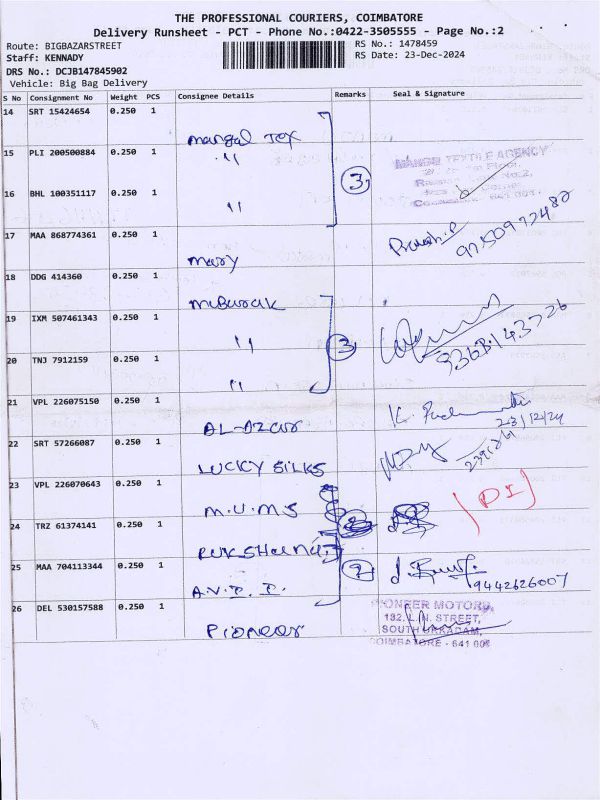 THE PROFESSIONAL COURIERS, COIMBATORE
Delivery Runsheet - PCT - Phone No.:0422-3505555 - Page No.:2
Route: BIGBAZARSTREET
RS No.: 1478459
Staff: KENNADY
RS Date: 23-Dec-2024
DRS No.: DCJB147845902
Vehicle: Big Bag Delivery
S No Consignment No Weight PCS Consignee Details Remarks Seal & Signature
14 SRT 15424654 0.250 1
Mangal Tex
15 PLI 200500884 0.250 1
"
MANGAL TEXTILE AGENCY
3
16 BHL 100351117 0.250 1
"
17 MAA 868774361 0.250 1
Mary
18 DDG 414360 0.250 1
Mubarak
19 IXM 507461343 0.250 1
"
3
20 TNJ 7912159 0.250 1
"
21 VPL 226075150 0.250 1
AL-Azar
23/12/24
22 SRT 57266087 0.250 1
LUCKY SILKS
23 VPL 226070643 0.250 1
M.U.M.S
24 TRZ 61374141 0.250 1
25 MAA 704113344 0.250 1
2
9442626007
26 DEL 530157588 0.250 1
Pioneer
PIONEER MOTORS,
132, L.N. STREET,
SOUTH UKKADAM,
COIMBATORE - 641 001